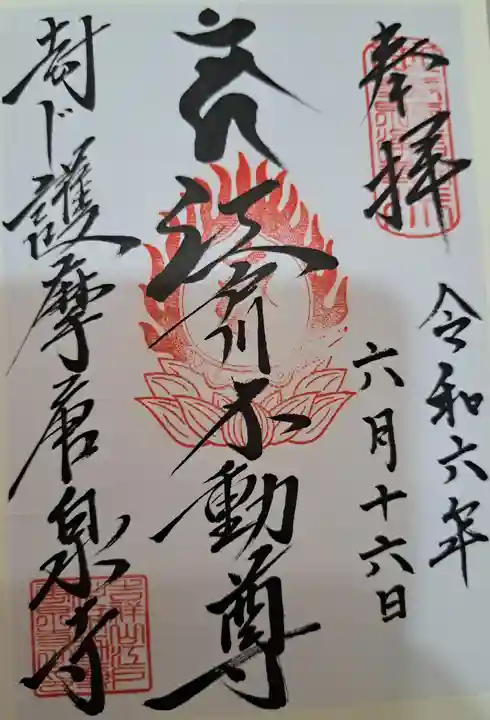 奉拝
令和六年
六月十六日
江戸川不動尊
封ド護摩唐泉寺